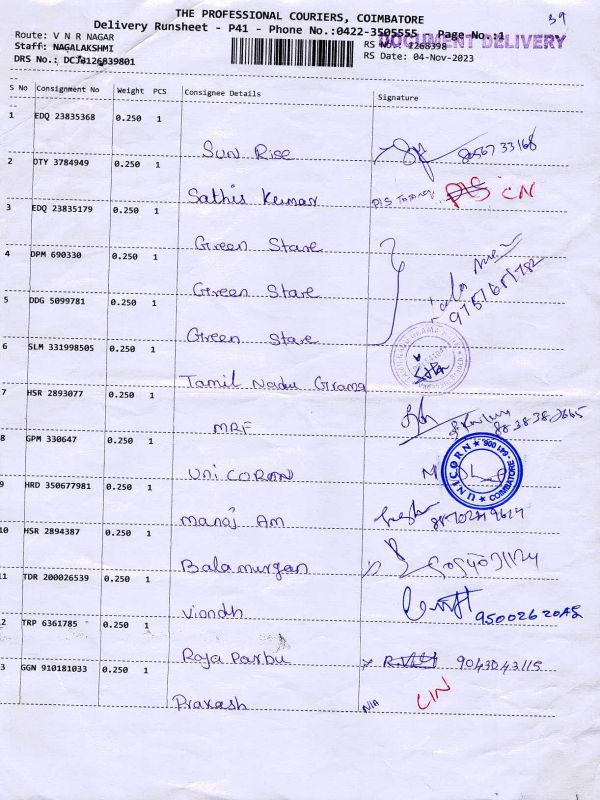 THE PROFESSIONAL COURIERS, COIMBATORE
39
Delivery Runsheet - P41 - Phone No.:0422-3505555 Page No.:1
Route: V N R NAGAR
DOCUMENT DELIVERY
Staff: NAGALAKSHMI
RS No.: 1268398
DRS No.: DCJ0126839801
RS Date: 04-Nov-2023
S No Consignment No Weight PCS Consignee Details Signature
1 EDQ 23835368 0.250 1
Sun Rise
2 DTY 3784949 0.250 1
Sathis Kumar CN
3 EDQ 23835179 0.250 1
Green Stare
4 DPM 690330 0.250 1
Green Stare
5 DDG 5099781 0.250 1
Green Stare
6 SLM 331998505 0.250 1
Tamil Nadu Grama
7 HSR 2893077 0.250 1
MRF
8 GPM 330647 0.250 1
UNICORN COIMBATORE - 641 006.
UNI CORON
9 HRD 350677981 0.250 1
Manoj Am
10 HSR 2894387 0.250 1
Balamurgan
11 TDR 200026539 0.250 1
Viondh
2 TRP 6361785 0.250 1
Raja Parbu 9043043115
3 GGN 910181033 0.250 1
Prakash N/A CIN